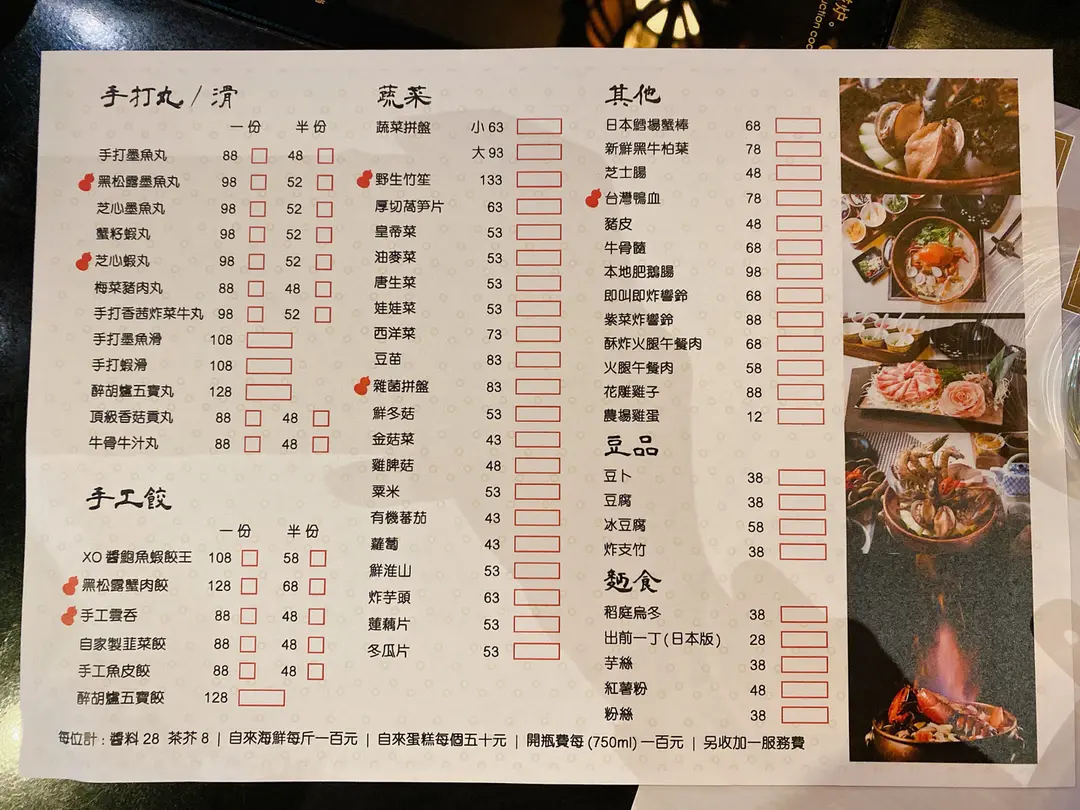 手打丸 / 滑
一份 半份
手打墨魚丸 88 48
黑松露墨魚丸 98 52
芝心墨魚丸 98 52
蟹籽蝦丸 98 52
芝心蝦丸 98 52
梅菜豬肉丸 88 48
手打香茜炸菜牛丸 98 52
手打墨魚滑 108
手打蝦滑 108
醉胡爐五寶丸 128
頂級香菇貢丸 88 48
牛骨牛汁丸 88 48
手工餃
一份 半份
XO 醬鮑魚蝦餃王 108 58
黑松露蟹肉餃 128 68
手工雲吞 88 48
自家製韮菜餃 88 48
手工魚皮餃 88 48
醉胡爐五寶餃 128
蔬菜
蔬菜拼盤 小 63
大 93
野生竹笙 133
厚切萵笋片 63
皇帝菜 53
油麥菜 53
唐生菜 53
娃娃菜 53
西洋菜 73
豆苗 83
雜菌拼盤 83
鮮冬菇 53
金菇菜 43
雞脾菇 48
粟米 53
有機蕃茄 43
蘿蔔 43
鮮淮山 53
炸芋頭 63
蓮藕片 53
冬瓜片 53
其他
日本鱈場蟹棒 68
新鮮黑牛柏葉 78
芝士腸 48
台灣鴨血 78
豬皮 48
牛骨髓 68
本地肥鵝腸 98
即叫即炸響鈴 68
紫菜炸響鈴 88
酥炸火腿午餐肉 68
火腿午餐肉 58
花雕雞子 88
農場雞蛋 12
豆品
豆卜 38
豆腐 38
冰豆腐 58
炸支竹 38
麵食
稻庭烏冬 38
出前一丁 (日本版) 28
芋絲 38
紅薯粉 48
粉絲 38
每位計 : 醬料 28 茶芥 8 | 自來海鮮每斤一百元 | 自來蛋糕每個五十元 | 開瓶費每 (750ml) 一百元 | 另收加一服務費